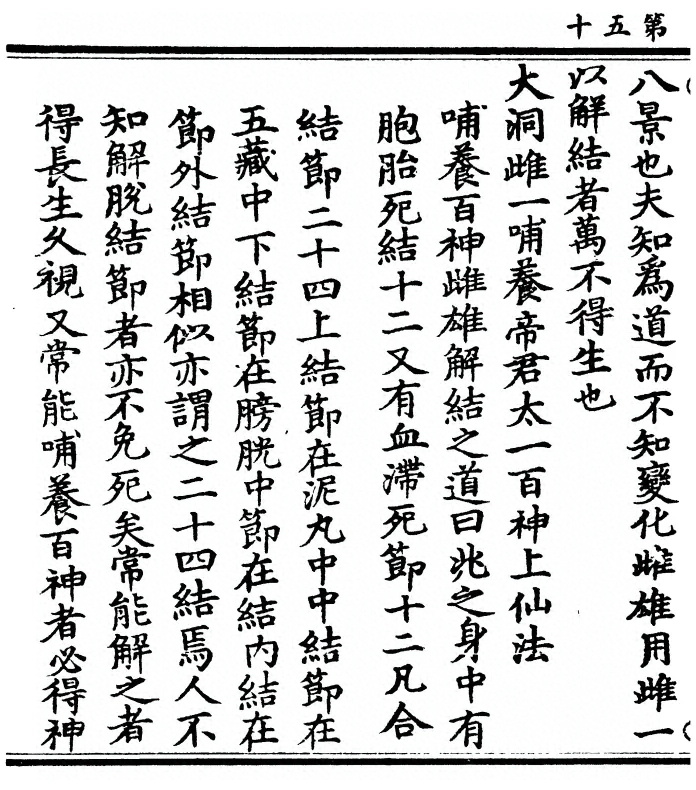 第五十
八景也夫知為道而不知變化雌雄用雌一
以解結者萬不得生也
大洞雌一哺養帝君太一百神上仙法
哺養百神雌雄解結之道曰兆之身中有
胞胎死結十二又有血滯死節十二凡合
結節二十四上結節在泥丸中中結節在
五藏中下結節在膀胱中節在結內結在
節外結節相似亦謂之二十四結焉人不
知解脫結節者亦不免死矣常能解之者
得長生久視又常能哺養百神者必得神